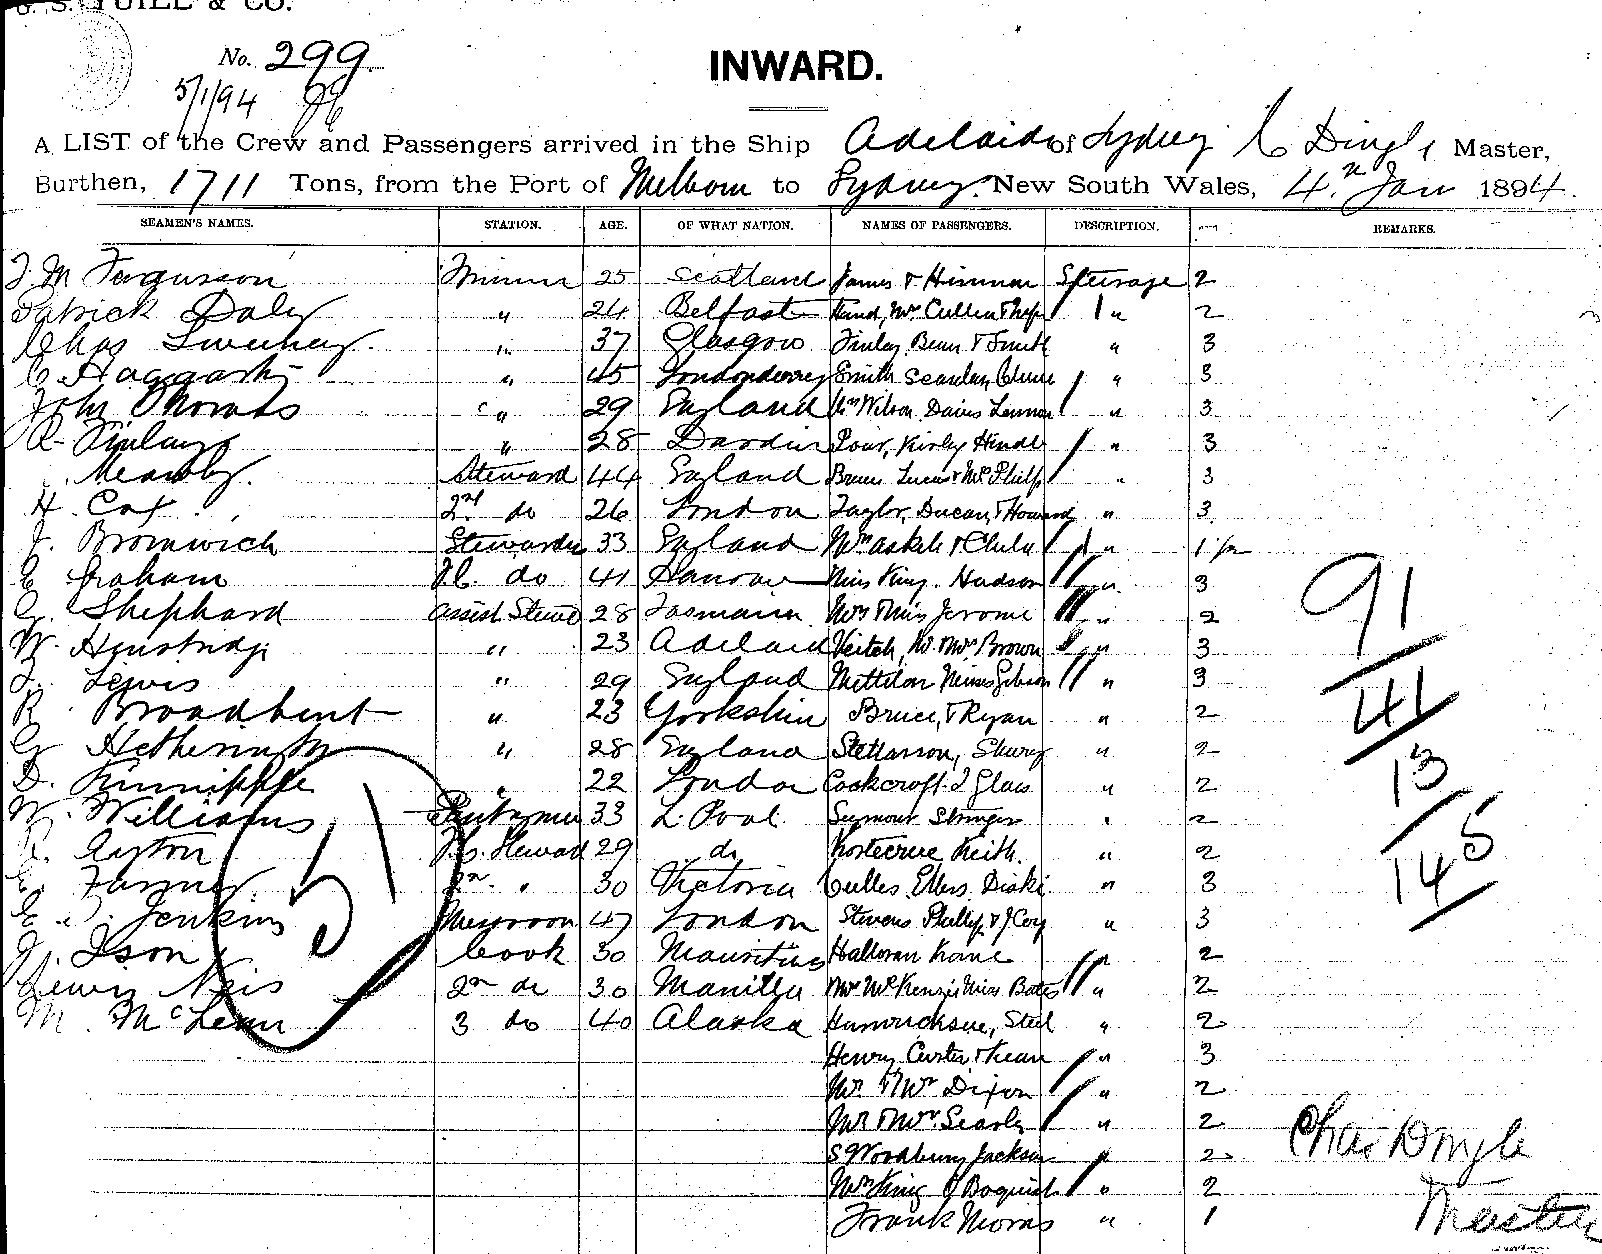 G. S. YUILL & CO.
No. 299
5/1/94
INWARD.
A LIST of the Crew and Passengers arrived in the Ship Adelaide of Sydney C Dingle Master,
Burthen, 1711 Tons, from the Port of Melbourn to Sydney New South Wales, 4th Jan 1894.
SEAMEN'S NAMES. STATION. AGE. OF WHAT NATION. NAMES OF PASSENGERS. DESCRIPTION. REMARKS.
J. M Fergusson Trimmer 25 Scotland James & Hinman Steerage 2
Patrick Daly " 24 Belfast " 2
Chas Sweeney " 37 Glasgow Finlay Bean & Smith " 3
C Haggarty " 45 Londonderry Smith Scanlan " 3
John Thomas " 29 England Wilson Davies Lennon " 3
R Finlay " 28 Kirley Hindle " 3
Meanby Steward 44 England Lucas & Mr Philp " 3
H. Cox 2nd do 26 London Taylor, Ducan, & Howard " 3
J. Bromwich Stewardess 33 England " 1
E Graham do 41 Hanover Miss King Hudson " 3
G. Shephard assist Stewd 28 Tasmania Mrs & Miss Jerome " 2
W. Henstridge " 23 Adelaid Veitch, Mr & Mrs Brown " 3
Lewis " 29 England Misses Gibson " 3
R. Broadbent " 23 Yorkshire Bruce, & Ryan " 2
G Hetherington " 28 England " 2
D. Kinnipple " 22 London Cockcroft & Glass " 2
W. Williams Pantryman 33 L. Pool Seymour Stringer " 2
R. Ayton F.C. Steward 29 do Keith. " 2
Farmer 2nd " 30 Victoria Culles Ellers " 3
E. P. Jenkins Messroom 47 London Stevens Phillip & J Coy " 3
J. Ison Cook 30 Mauritius Halloran Kane " 2
Lewis Neis 2nd do 30 Manilla Mr McKenzie Miss Bates " 2
M. McLean 3 do 40 Alaska " 2
Henry Curtis & Kean " 3
Mr & Mrs Dixon " 2
Mr & Mrs Searly " 2
S Woodbury Jackson " 2
Mrs King " 2
Frank Morris " 1
51
91
41
13
145
Chas Dingle
Master